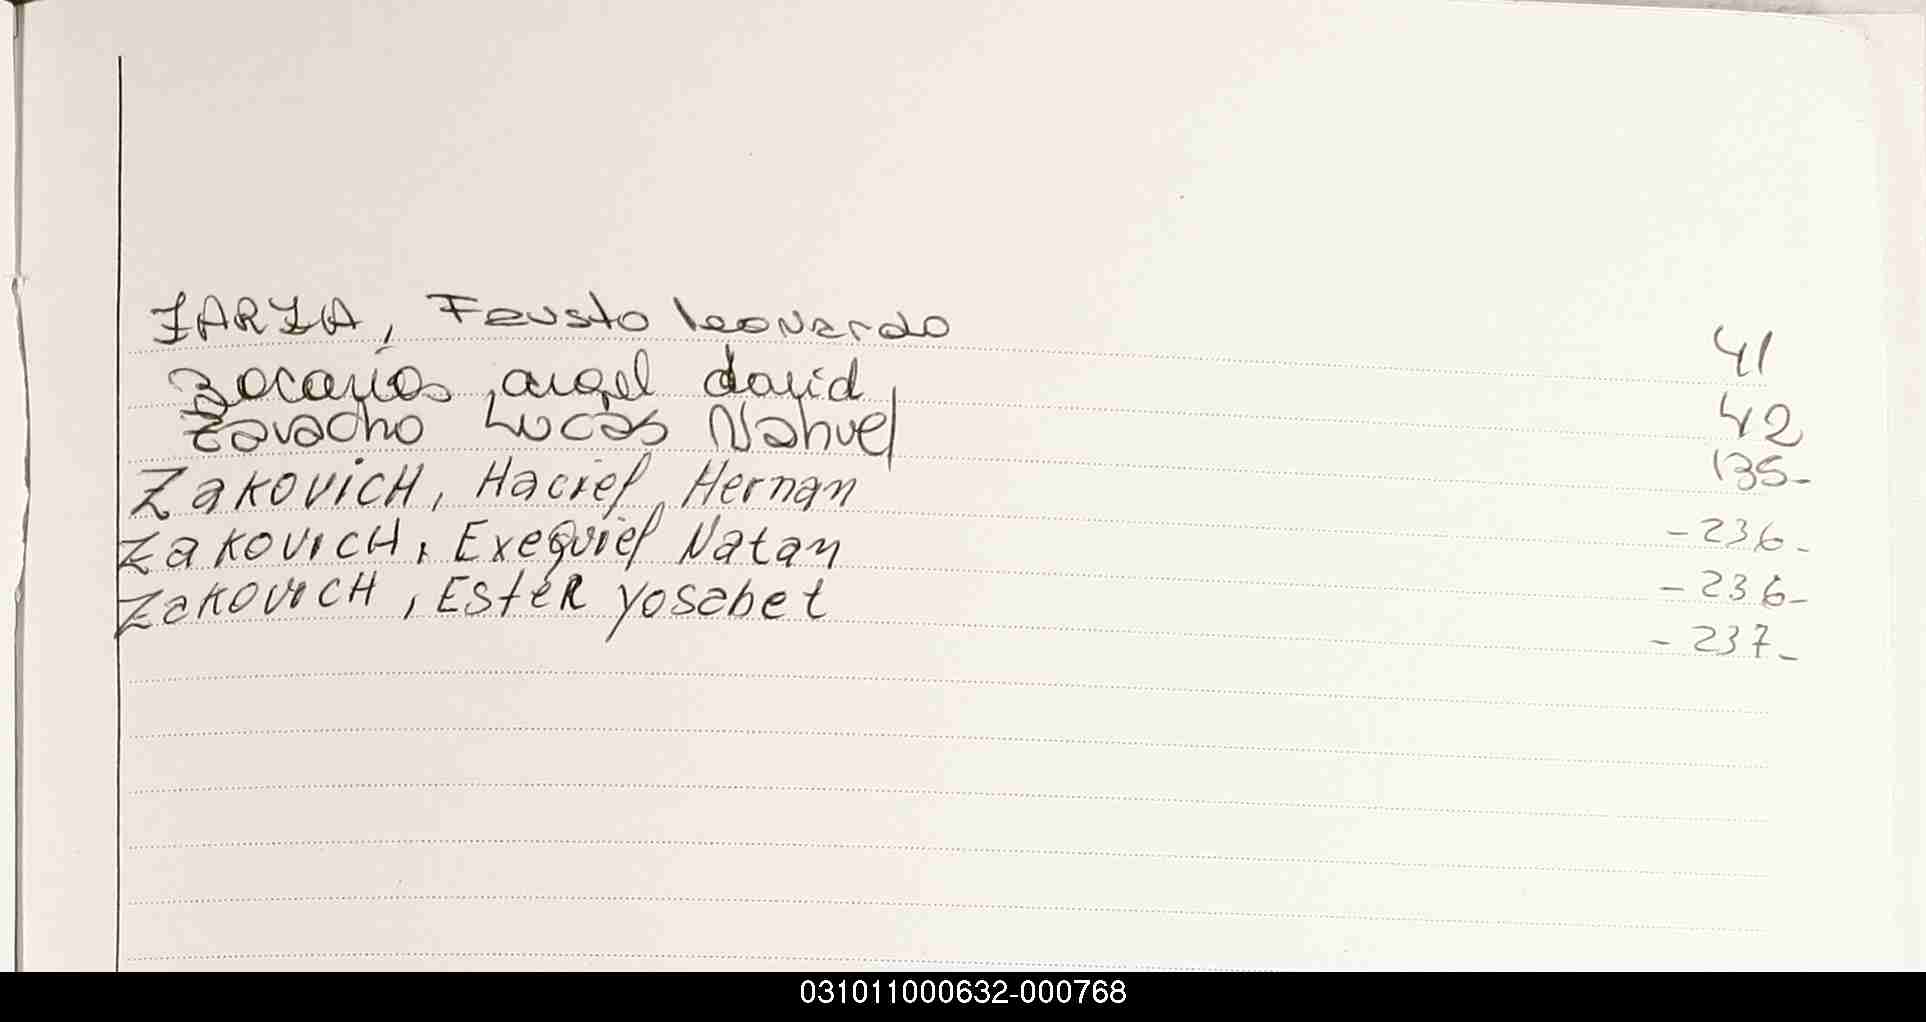 ZARZA, Fausto leonardo 41
Zacarias, angel david 42
Zaracho Lucas Nahuel 135-
ZaKOViCH, Haciel, Hernan -236-
ZaKOVICH, Exequiel Natan -236-
ZaKOVICH, EsteR yosabet -237-
031011000632-000768